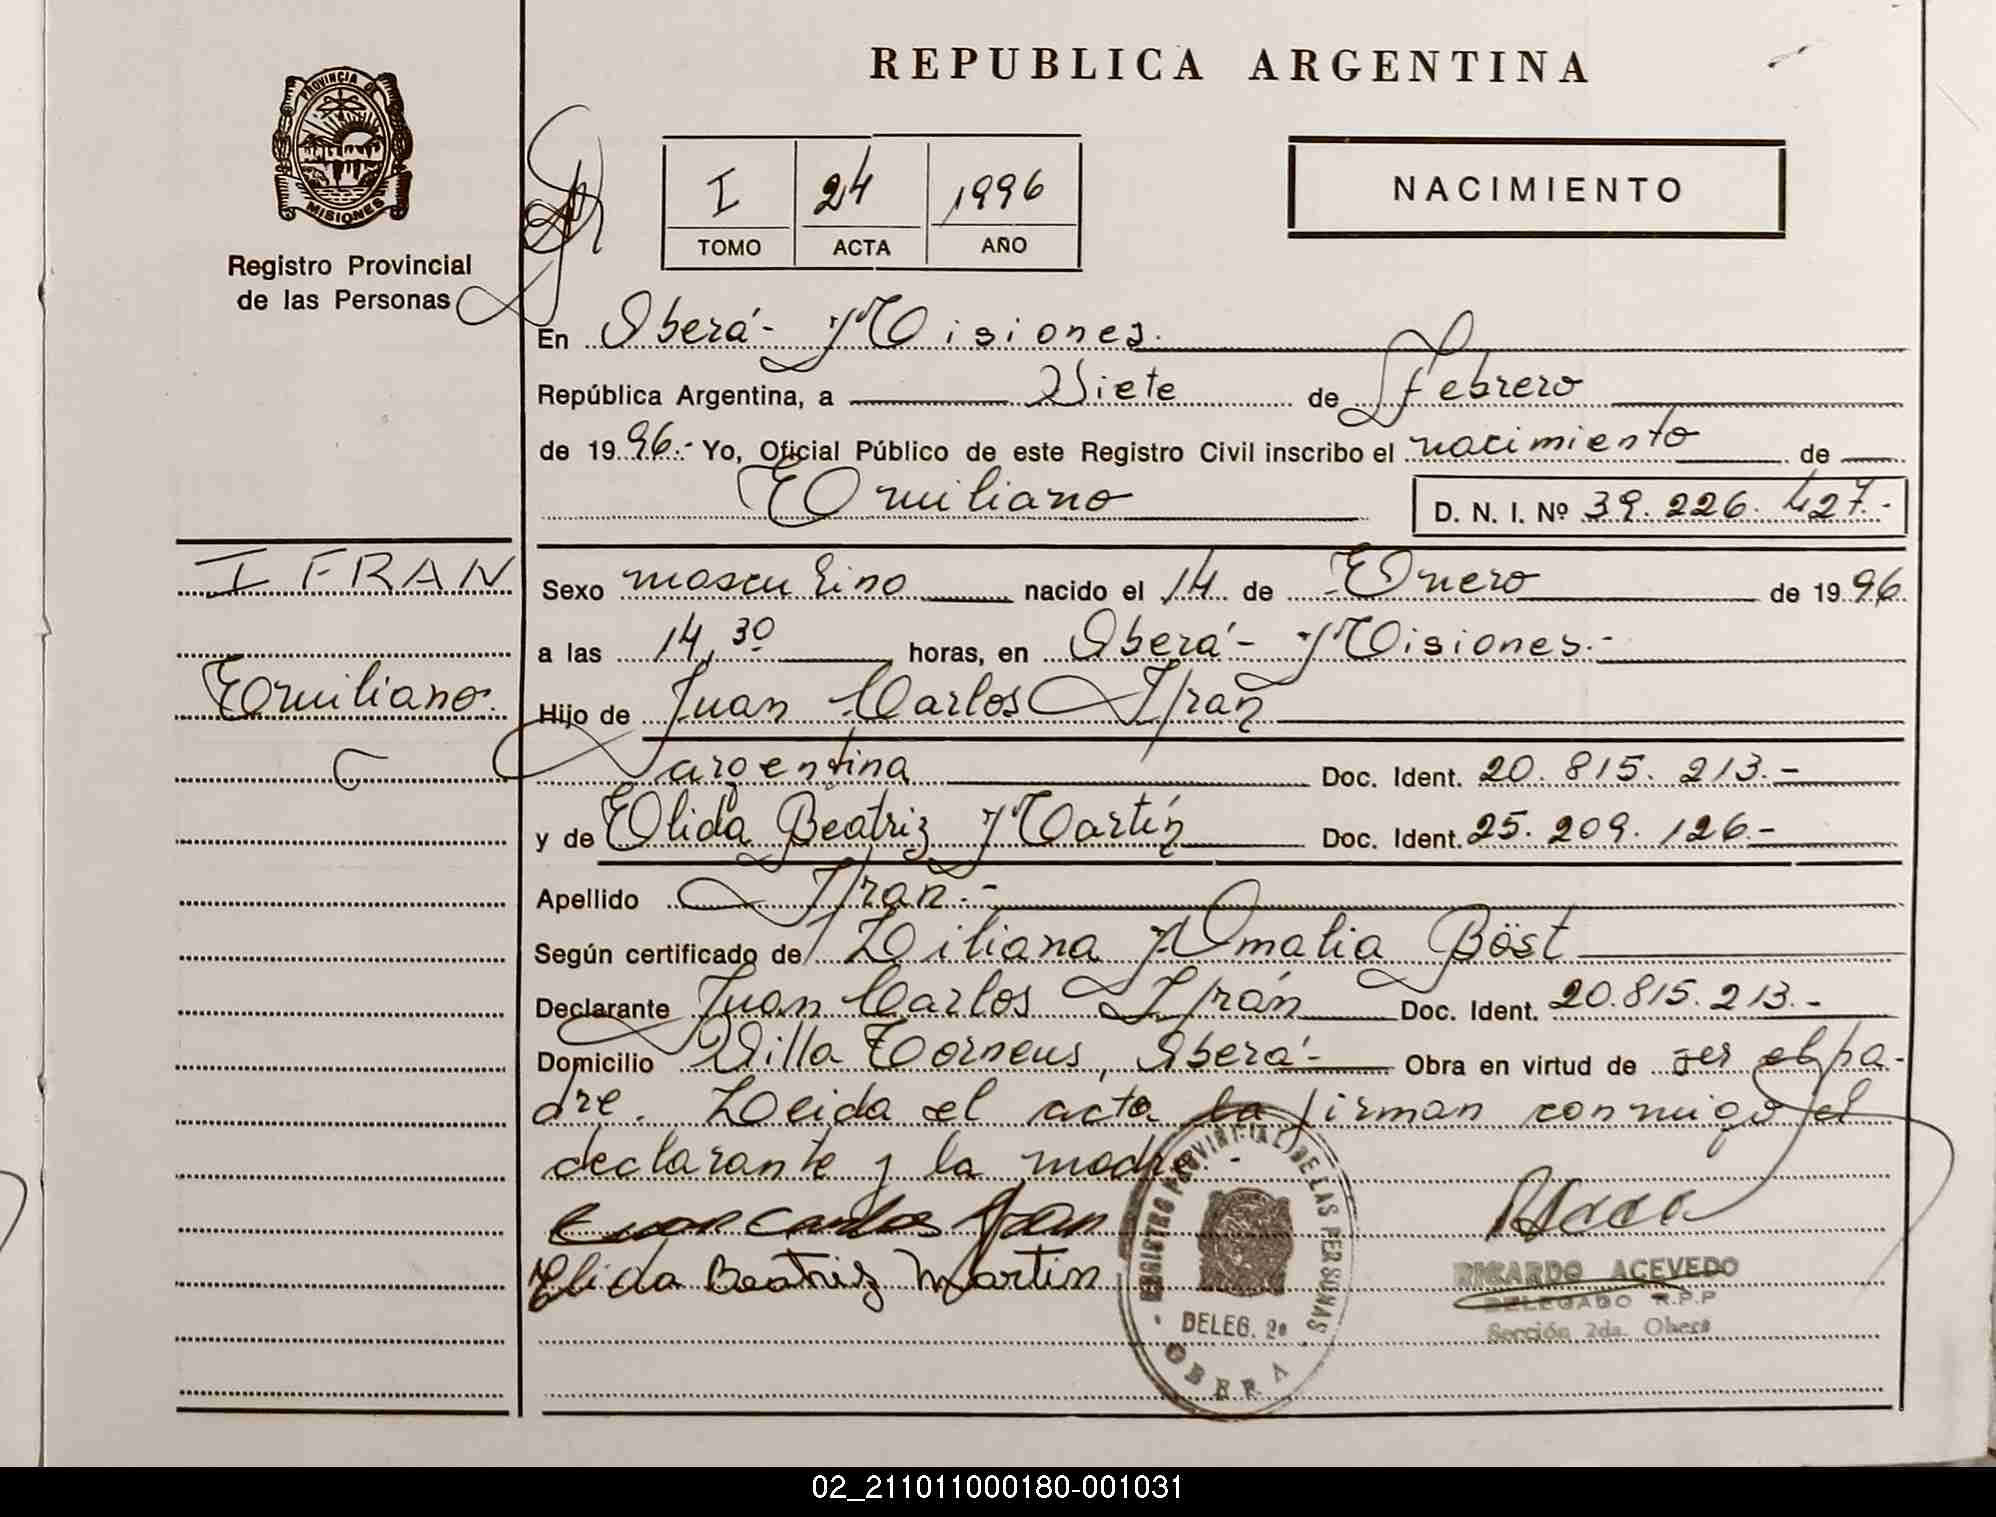 REPUBLICA ARGENTINA
PROVINCIA DE
MISIONES
Registro Provincial
de las Personas
I 24 1996
TOMO ACTA AÑO
NACIMIENTO
En Oberá- Misiones.
República Argentina, a Siete de Febrero
de 1996.- Yo, Oficial Público de este Registro Civil inscribo el nacimiento de
Emiliano
D. N. I. Nº 39.226.427.-
IFRAN
Emiliano.
Sexo masculino nacido el 14 de Enero de 1996
a las 14,30 horas, en Oberá- Misiones.-
Hijo de Juan Carlos Ifrañ
argentina Doc. Ident. 20.815.213.-
y de Elida Beatriz Martín Doc. Ident. 25.209.126.-
Apellido Ifrañ.-
Según certificado de Liliana Amalia Böst
Declarante Juan Carlos Ifrán Doc. Ident. 20.815.213.-
Domicilio Villa Torneus, Oberá- Obra en virtud de ser el pa-
dre. Leida el acta la firman conmigo el
declarante y la madre.-
Juan Carlos Ifran
Elida Beatriz Martin
REGISTRO PROVINCIAL DE LAS PERSONAS
DELEG. 2a
OBERA
RICARDO ACEVEDO
DELEGADO R.P.P
Sección 2da. Oberá
02_211011000180-001031